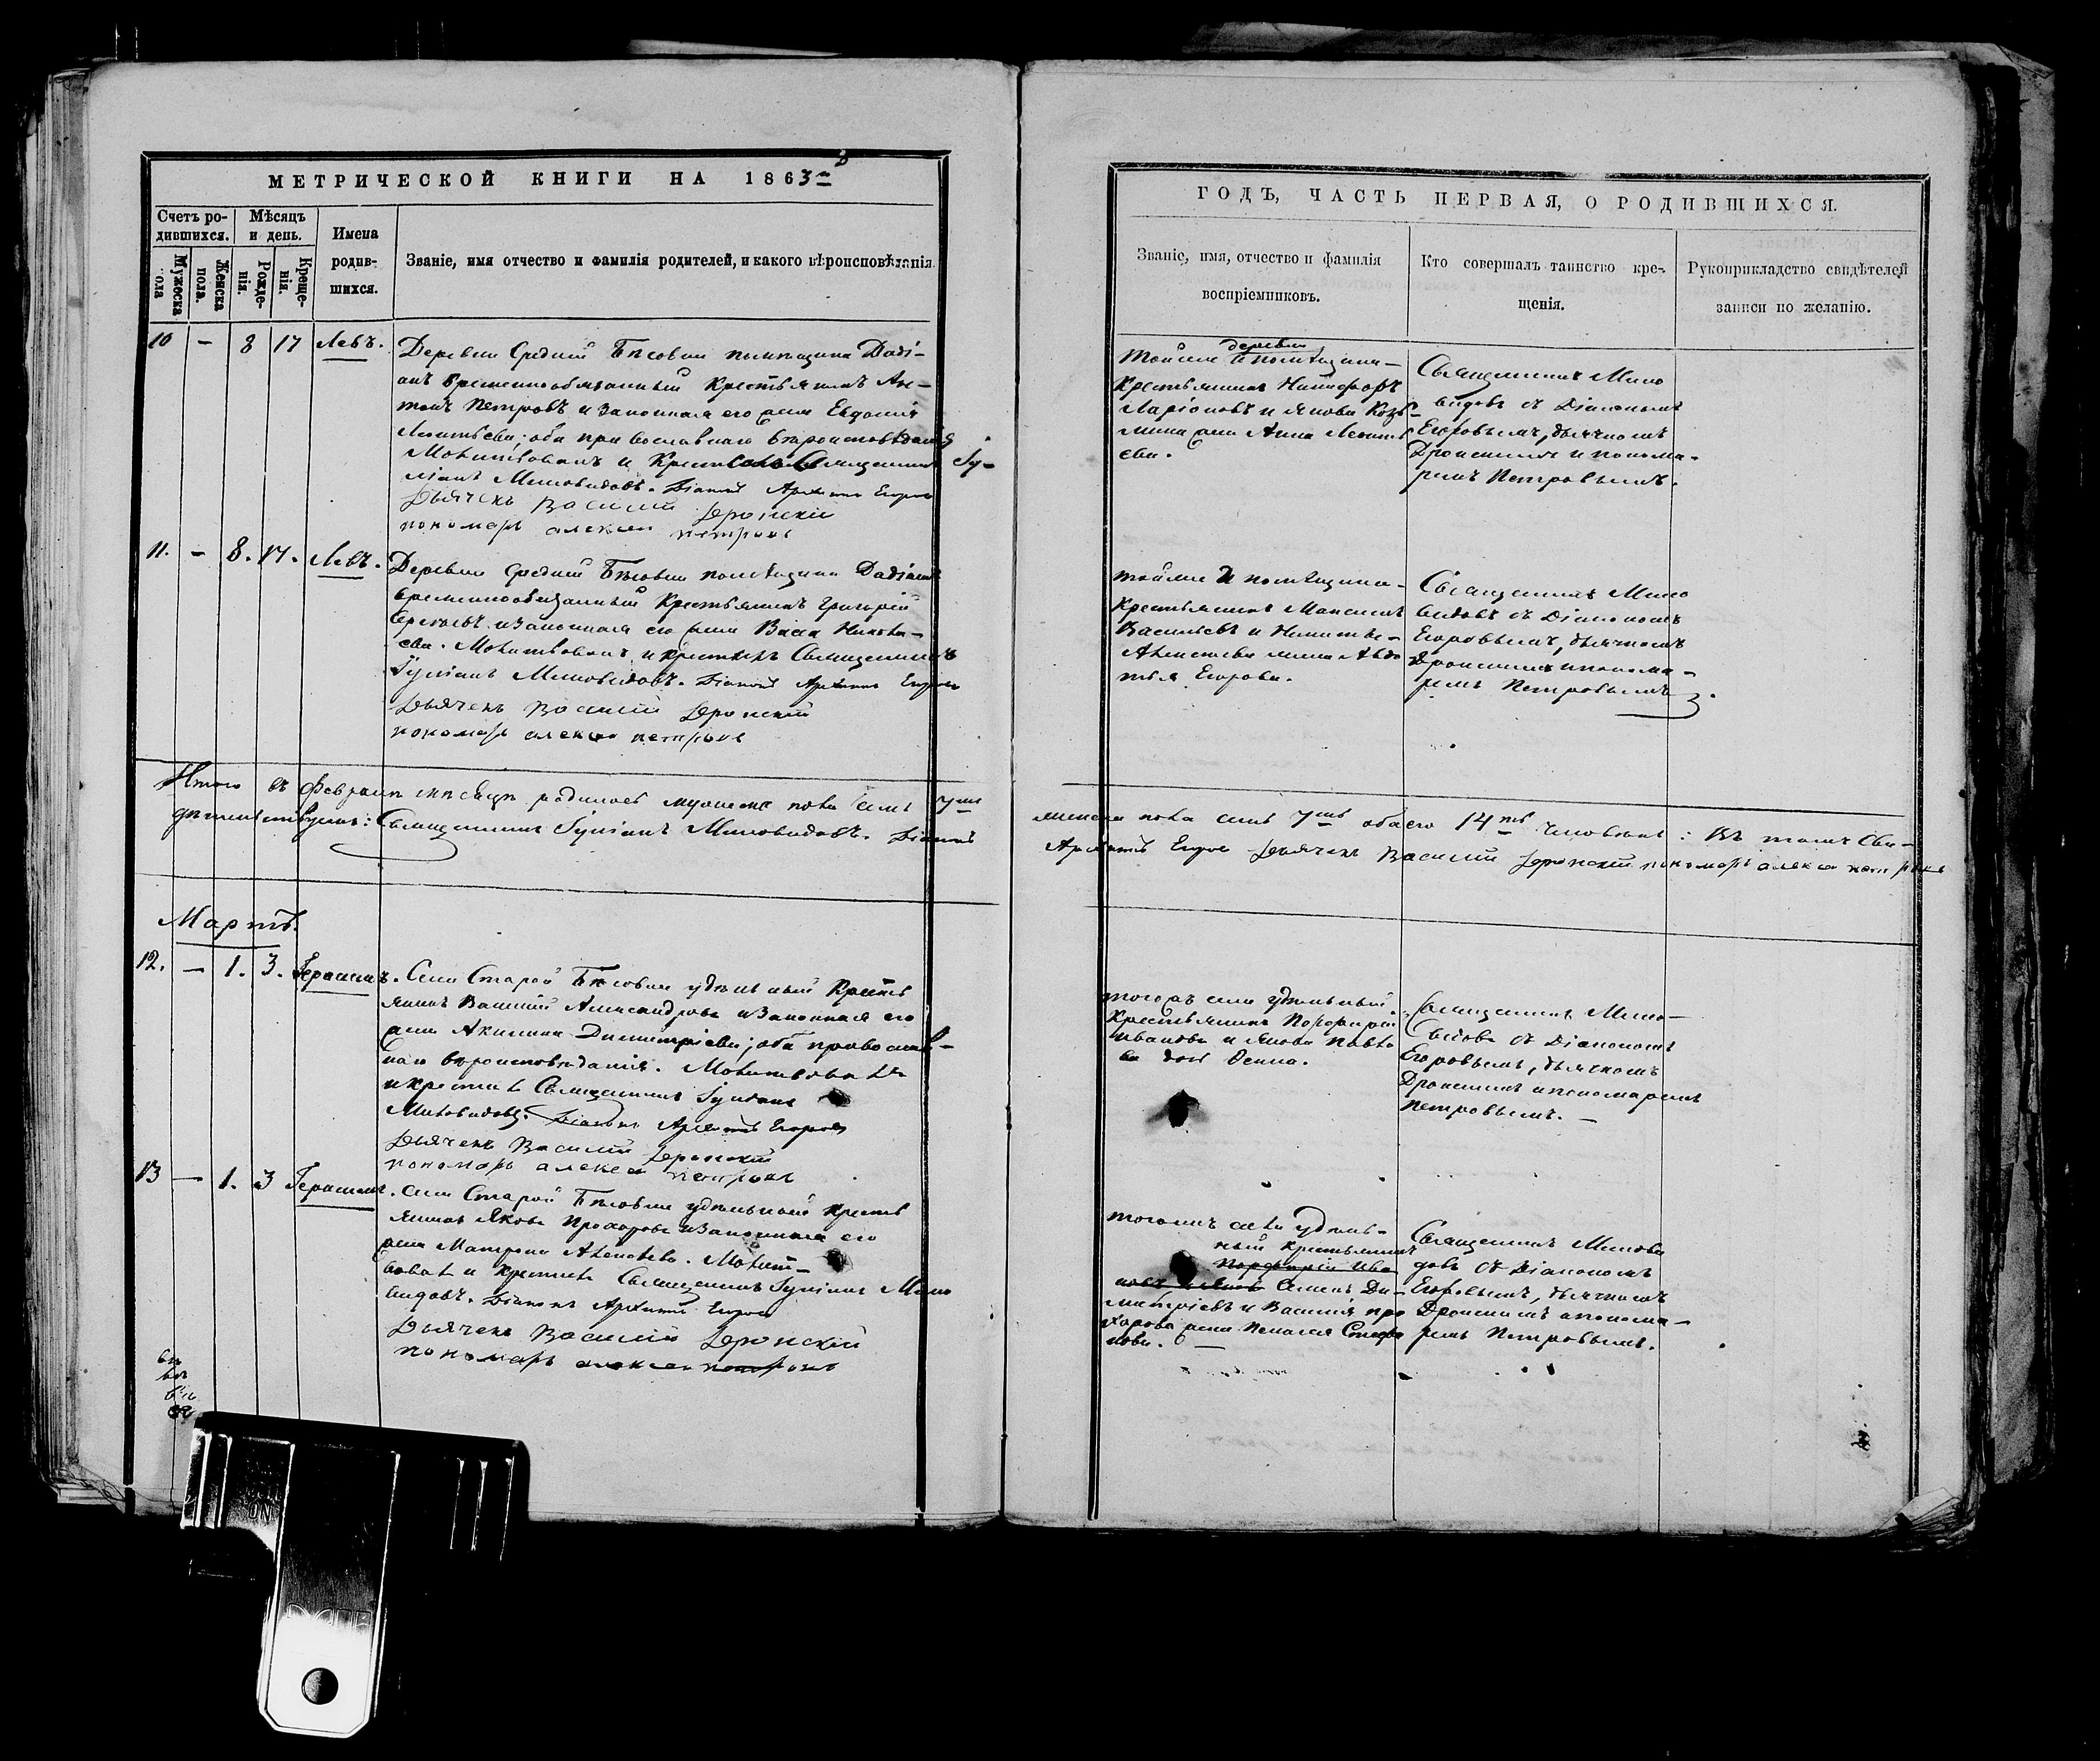 МЕТРИЧЕСКОЙ КНИГИ НА 1863
Счетъ ро-
дившихся.
Мѣсяцъ
и день.
Имена
родив-
шихся.
Званіе, имя отчество и фамилія родителей, и какого вѣроисповѣданія
Мужеска
пола
Женска
пола.
Рожде-
нія.
Креще-
нія.
10 – 8 17 Левъ.
Деревни Средней помѣщика Dadi-
анъ временнообязанный Крестьянинъ Ан-
тонъ Петровъ и законная его жена Евдокія
Леонтьева; оба православнаго вѣроисповѣданія
Молитвовалъ и Крестилъ Священникъ Іу-
ліанъ Миловидовъ. Діаконъ Архипъ Егоровъ
Дьячекъ Василій Дронскій
пономарь алексей петровъ
11. – 8. 17. Левъ.
Деревни Средней помѣщика Dadiанъ
временнообязанный Крестьянинъ Григорій
и законная его жена Васса Никола-
ева. Молитвовалъ и крестилъ Священникъ
Іуліанъ Миловидовъ. Діаконъ Архипъ Егоровъ
Дьячекъ Василій Дронскій
пономарь алексей петровъ
Итого въ Февралѣ мѣсяцѣ родилось мужеска пола семь 7мь
дѣтельствуемъ: Священникъ Іуліанъ Миловидовъ. Діаконъ
Мартъ.
12. – 1. 3. Герасимъ.
Села Старой удѣльный Кресть
янинъ Василій Александровъ и законная его
жена Акилина Димитріева; оба православ-
наго вѣроисповѣданія. Молитвовалъ
и крестилъ Священникъ Іуліанъ
Миловидовъ. Діаконъ Архипъ Егоровъ
Дьячекъ Василій Дронскій
пономарь алексей петровъ
13 – 1. 3 Герасимъ.
Села Старой удѣльный кресть
янинъ Яковъ Прохоровъ и законная его
жена Матрона Алексѣева. Молит-
вовалъ и крестилъ Священникъ Іуліанъ Мило
видовъ. Діаконъ Архипъ Егоровъ
Дьячекъ Василій Дронскій
пономарь алексей петровъ
ГОДЪ, ЧАСТЬ ПЕРВАЯ, О РОДИВШИХСЯ.
Званіе, имя, отчество и фамилія
воспріемниковъ.
Кто совершалъ таинство кре-
щенія.
Рукоприкладство свидѣтелей
записи по желанію.
деревни
Тойже и помѣщика
Крестьянинъ Никифоръ
Ларіоновъ и Якова Козь-
мина жена Анна Леонть
ева.
Священникъ Мило
видовъ съ Діакономъ
Егоровымъ, дьячкомъ
Дронскимъ и понома-
ремъ Петровымъ.
тойже и помѣщика
Крестьянинъ Максимъ
Васильевъ и
Алексѣева жена Авдо
тья Егорова.
Священникъ Мило
видовъ съ Діакономъ
Егоровымъ, дьячкомъ
Дронскимъ и понома-
ремъ Петровымъ.
женска пола семь 7мь обоего 14ть человѣкъ: Въ томъ Сви-
Архипъ Егоровъ Дьячекъ Василій Дронскій пономарь алексей петровъ
тогожъ села удѣльный
Крестьянинъ Порфирій
Ивановъ и Якова Павло
ва
Священникъ Мило-
видовъ съ Діакономъ
Егоровымъ, дьячкомъ
Дронскимъ и пономаремъ
Петровымъ.
тогожъ села удѣль-
ный крестьянинъ
Порфирій Ива
новъ Семенъ Ди-
митріевъ и Василія про
хорова жена Пелагея Стефа
нова.
Священникъ Милови
довъ съ Діакономъ
Егоровымъ, дьячкомъ
Дронскимъ и понома-
ремъ Петровымъ.